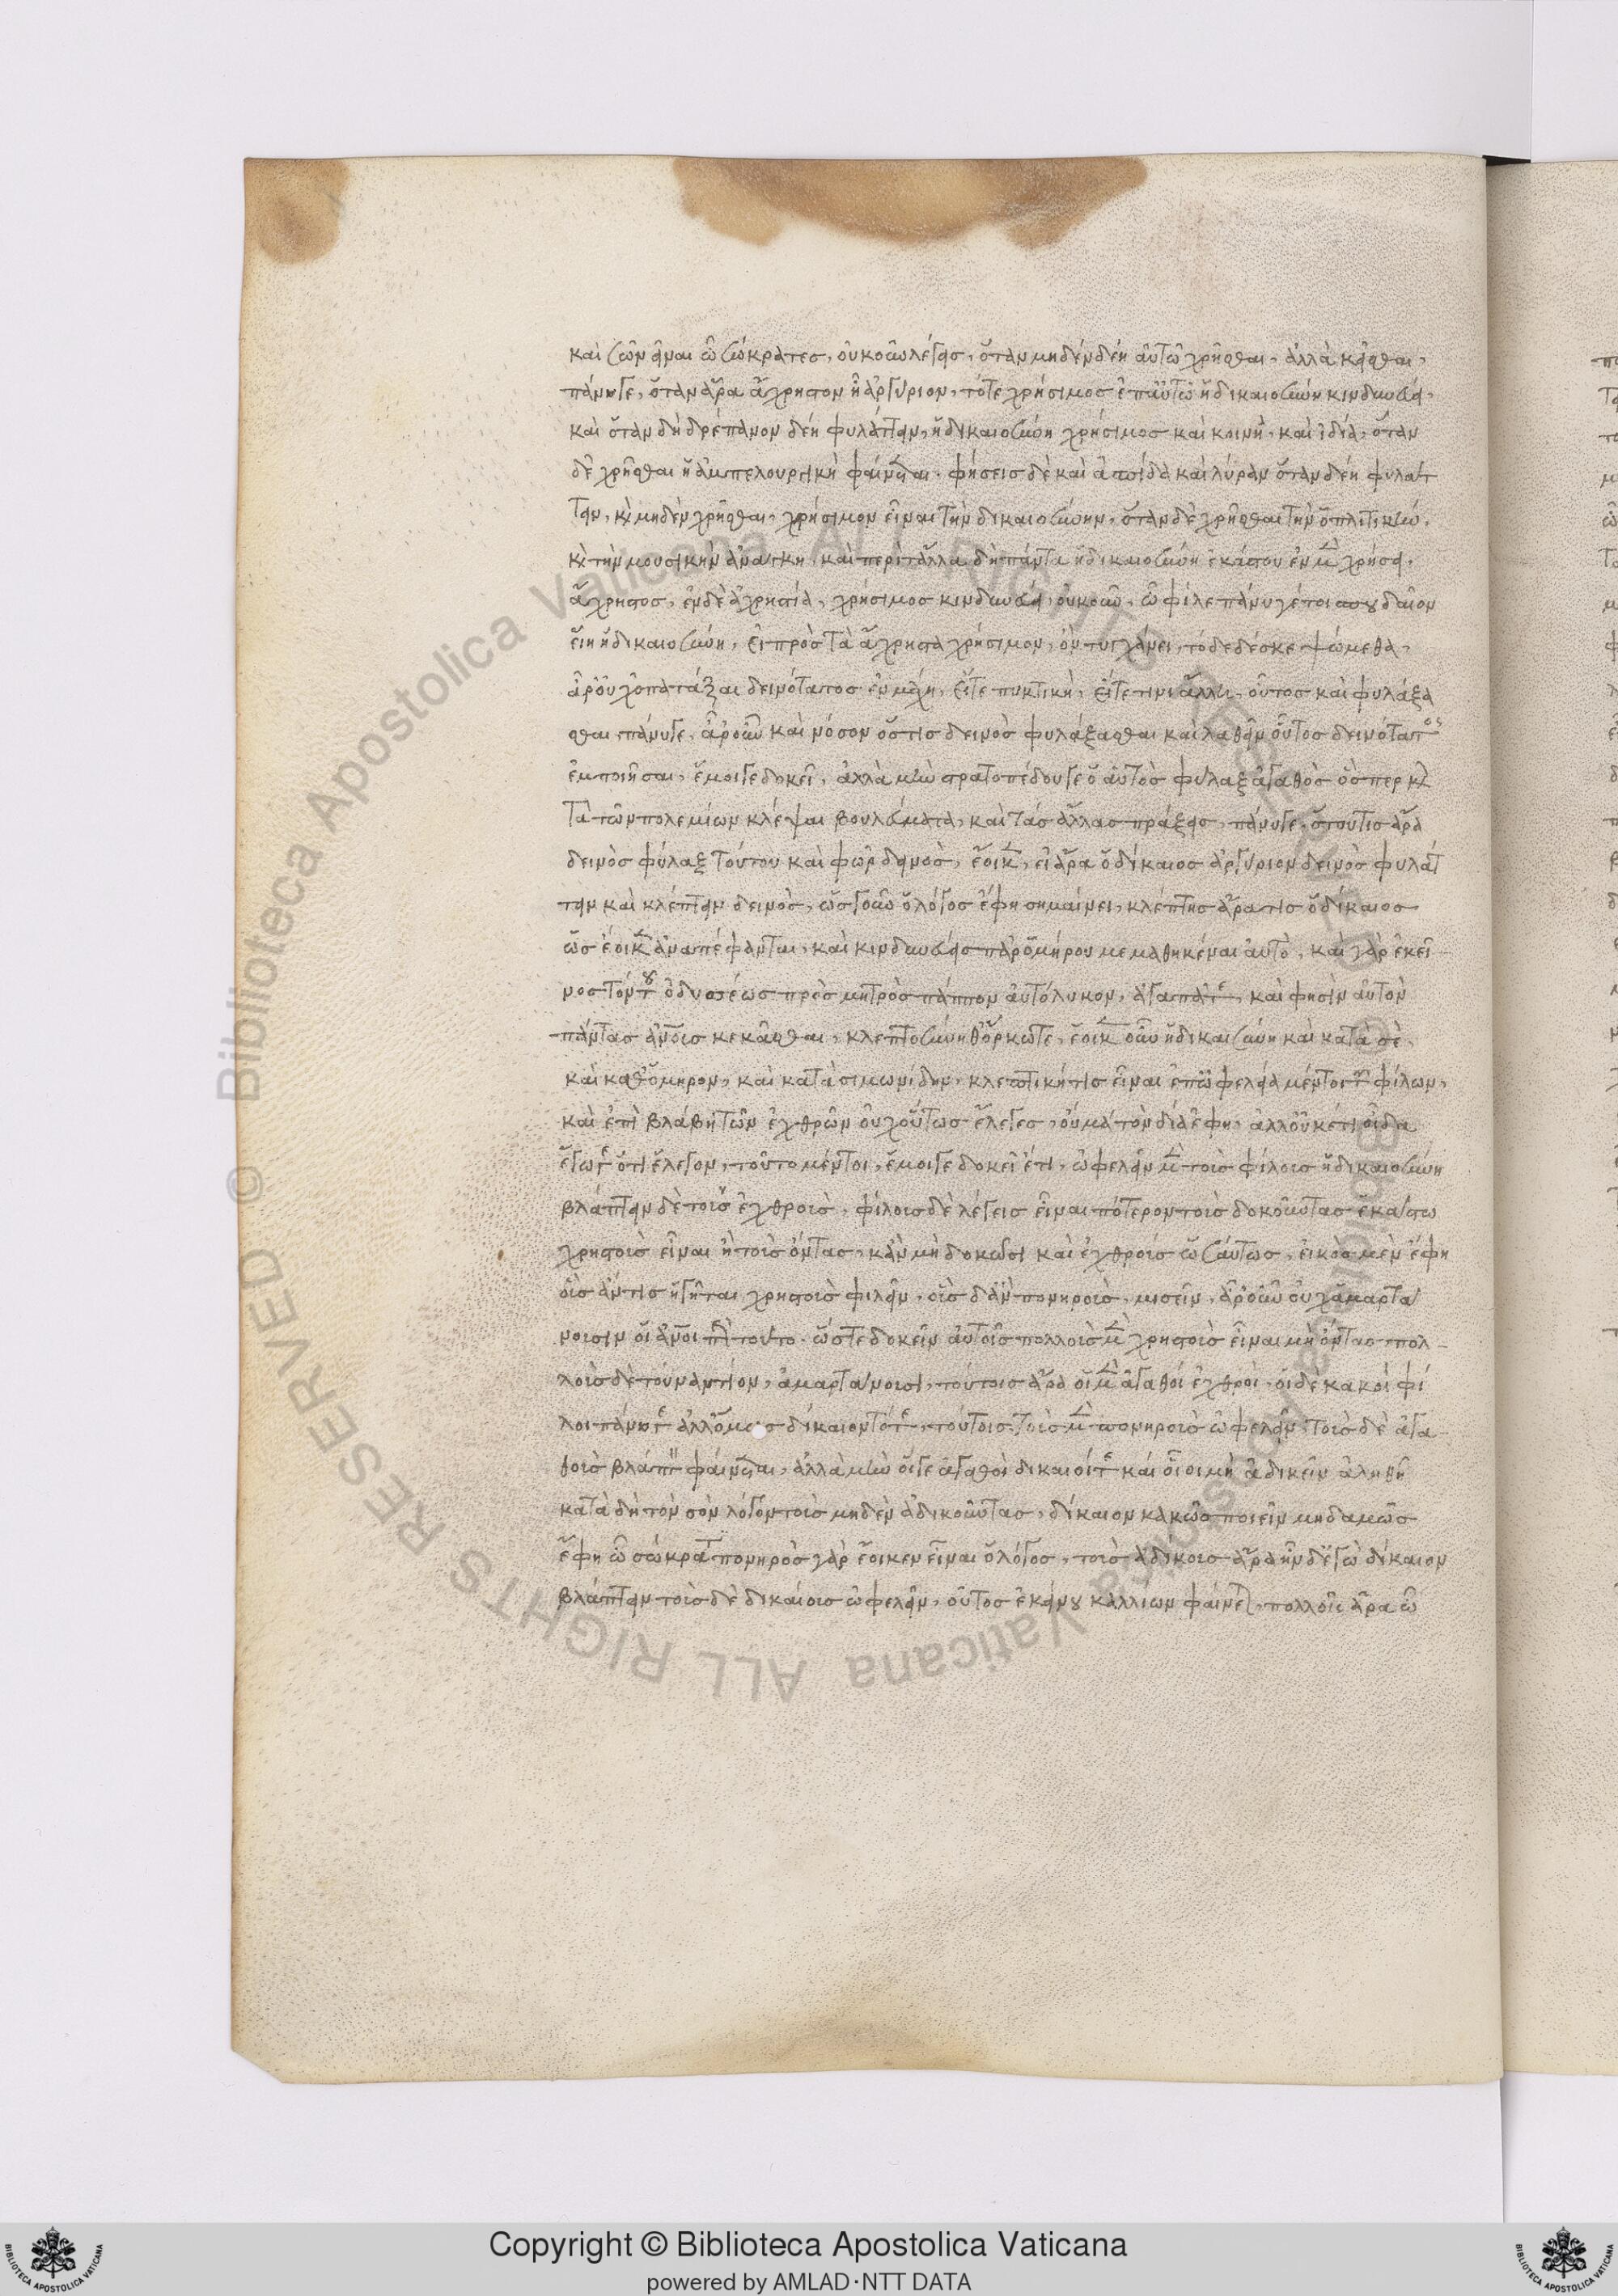 καὶ σῶν εἶναι ὦ σώκρατες, οὐκοῦν λέγεις, ὅταν μηδὲν δέῃ αὐτῷ χρῆσθαι, ἀλλὰ κεῖσθαι,
πάνυγε, ὅταν ἄρα ἄχρηστον ᾖ ἀργύριον, τότε χρήσιμος ἐπαὐτῷ ἡ δικαιοσύνη κινδυνεύει,
καὶ ὅταν δὴ δρέπανον δέῃ φυλάττειν, ἡ δικαιοσύνη χρήσιμος καὶ κοινῇ, καὶ ἰδίᾳ, ὅταν
δὲ χρῆσθαι ἡ ἀμπελουργικὴ φαίνεται. φήσεις δὲ καὶ ἀσπίδα καὶ λύραν ὅταν δέῃ φυλάτ
τειν, καὶ μηδὲν χρῆσθαι, χρήσιμον εἶναι τὴν δικαιοσύνην, ὅταν δὲ χρῆσθαι τὴν ὁπλιτικὴν,
καὶ τὴν μουσικὴν ἀνάγκη, καὶ περὶ τἄλλα δὴ πάντα ἡ δικαιοσύνη ἑκάστου ἐν μὲν χρήσει.
ἄχρηστος, ἐν δὲ ἀχρηστίᾳ, χρήσιμος κινδυνεύει, οὐκοῦν, ὦ φίλε πάνυ γέ τοι σπουδαῖον
εἴη ἡ δικαιοσύνη, εἰ πρὸς τὰ ἄχρηστα χρήσιμον, ὂν τυγχάνει, τόδε δέ σκεψώμεθα,
ἆρ οὐχ ὁ πατάξαι δεινότατος ἐν μάχῃ, εἴτε πυκτικῇ, εἴτε τινι ἄλλῃ, οὗτος καὶ φυλάξα
σθαι πάνυγε, ἆρ οὖν καὶ νόσον ὅστις δεινὸς φυλάξασθαι καὶ λαθεῖν οὗτος δεινότατος
ἐμποιῆσαι, ἔμοιγε δοκεῖ, ἀλλὰ μὴν στρατοπέδου γε ὁ αὐτὸς φύλαξ ἀγαθὸς ὅσπερ καὶ
τὰ τῶν πολεμίων κλέψαι βουλεύματα, καὶ τὰς ἄλλας πράξεις, πάνυγε, ὅτου τις ἄρα
δεινὸς φύλαξ τούτου καὶ φὼρ δεινὸς, ἔοικεν, εἰ ἄρα ὁ δίκαιος ἀργύριον δεινὸς φυλάτ
τειν καὶ κλέπτειν δεινὸς, ὥς γοῦν ὁ λόγος ἔφη σημαίνει, κλέπτης ἄρα τις ὁ δίκαιος
ὡς ἔοικεν ἀναπέφανται, καὶ κινδυνεύεις παρ ὁμήρου μεμαθηκέναι αὐτὸ, καὶ γὰρ ἐκεῖ
νος τὸν τοῦ ὀδυσσέως πρὸς μητρὸς πάππον αὐτόλυκον, ἀγαπᾷ τε, καὶ φησὶν αὐτὸν
πάντας ἀνθρώπους κεκάσθαι, κλεπτοσύνῃ θ ὅρκῳ τε, ἔοικεν οὖν ἡ δικαιοσύνη καὶ κατὰ σὲ,
καὶ καθ ὅμηρον, καὶ κατὰ σιμωνίδην, κλεπτική τις εἶναι ἐπ ὠφελείᾳ μέντοι τῶν φίλων,
καὶ ἐπὶ βλάβῃ τῶν ἐχθρῶν οὐχ οὕτως ἔλεγες, οὐ μὰ τὸν δία ἔφη, ἀλλ οὐκέτι οἶδα
ἔγωγε ὅτι ἔλεγον, τοῦτο μέντοι, ἔμοιγε δοκεῖ ἔτι, ὠφελεῖν μὲν τοὺς φίλους ἡ δικαιοσύνη
βλάπτειν δὲ τοὺς ἐχθροὺς, φίλους δὲ λέγεις εἶναι πότερον τοὺς δοκοῦντας ἑκάστῳ
χρηστοὺς εἶναι ἢ τοὺς ὄντας, κἂν μὴ δοκῶσι καὶ ἐχθροὺς ὡσαύτως, εἰκὸς μὲν ἔφη
οὓς ἄν τις ἡγῆται χρηστοὺς φιλεῖν, οὓς δ ἂν πονηροὺς, μισεῖν, ἆρ οὖν οὐχ ἁμαρτά
νουσιν οἱ ἄνθρωποι περὶ τοῦτο. ὥστε δοκεῖν αὐτοῖς πολλοὺς μὲν χρηστοὺς εἶναι μὴ ὄντας πολ
λοὺς δὲ τοὐναντίον, ἁμαρτάνουσι, τούτοις ἄρα οἱ μὲν ἀγαθοὶ ἐχθροί. οἱ δὲ κακοὶ φί
λοι πάνυγε ἀλλ ὅμως δίκαιον τότε, τούτοις, τοὺς μὲν πονηροὺς ὠφελεῖν, τοὺς δὲ ἀγα
θοὺς βλάπτειν φαίνεται, ἀλλὰ μὴν οἵ γε ἀγαθοὶ δίκαιοί τε καὶ οἷοι μὴ ἀδικεῖν ἀληθῆ
κατὰ δὴ τὸν σὸν λόγον τοὺς μηδὲν ἀδικοῦντας, δίκαιον κακῶς ποιεῖν μηδαμῶς
ἔφη ὦ σώκρατες πονηρὸς γὰρ ἔοικεν εἶναι ὁ λόγος, τοὺς ἀδίκους ἄρα ἦν δ ἐγὼ δίκαιον
βλάπτειν τοὺς δὲ δικαίους ὠφελεῖν, οὗτος ἐκείνου καλλίων φαίνεται, πολλοῖς ἄρα ὦ
Copyright © Biblioteca Apostolica Vaticana
powered by AMLAD·NTT DATA